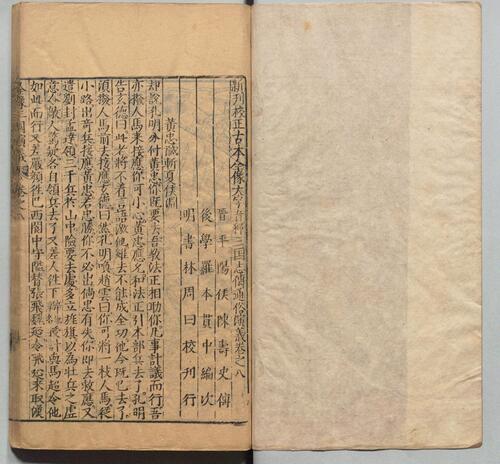 新刊校正古本全像大字音釋三國志傳通俗演義卷之八
晉平陽侯陳壽史傳
後學羅本貫中編次
明書林周曰校刊行
黃忠嚴斬夏侯淵
却說孔明分付黃忠你既要去吾教法正相助你凡事計議而行吾
亦撥人馬來接應你可小心黃忠應名和法正引本部兵去了孔明
告玄德曰此老將不着言語激他雖去不能成全功他今既已去了
須撥人馬前去接應玄德曰然孔明喚趙雲曰你可將一枝人馬從
小路出奇兵接應黃忠若忠勝你不必出倘忠有失你即去救應又
遣劉封孟達領三千兵於山中險要去處多立旌旗以為壯兵之虛
意人敵人驚疑各自領兵去了又差人往下辦授計與馬超令他
如此而行又差嚴顏往巴西閬中守隘替張飛魏延令飛延來取漢